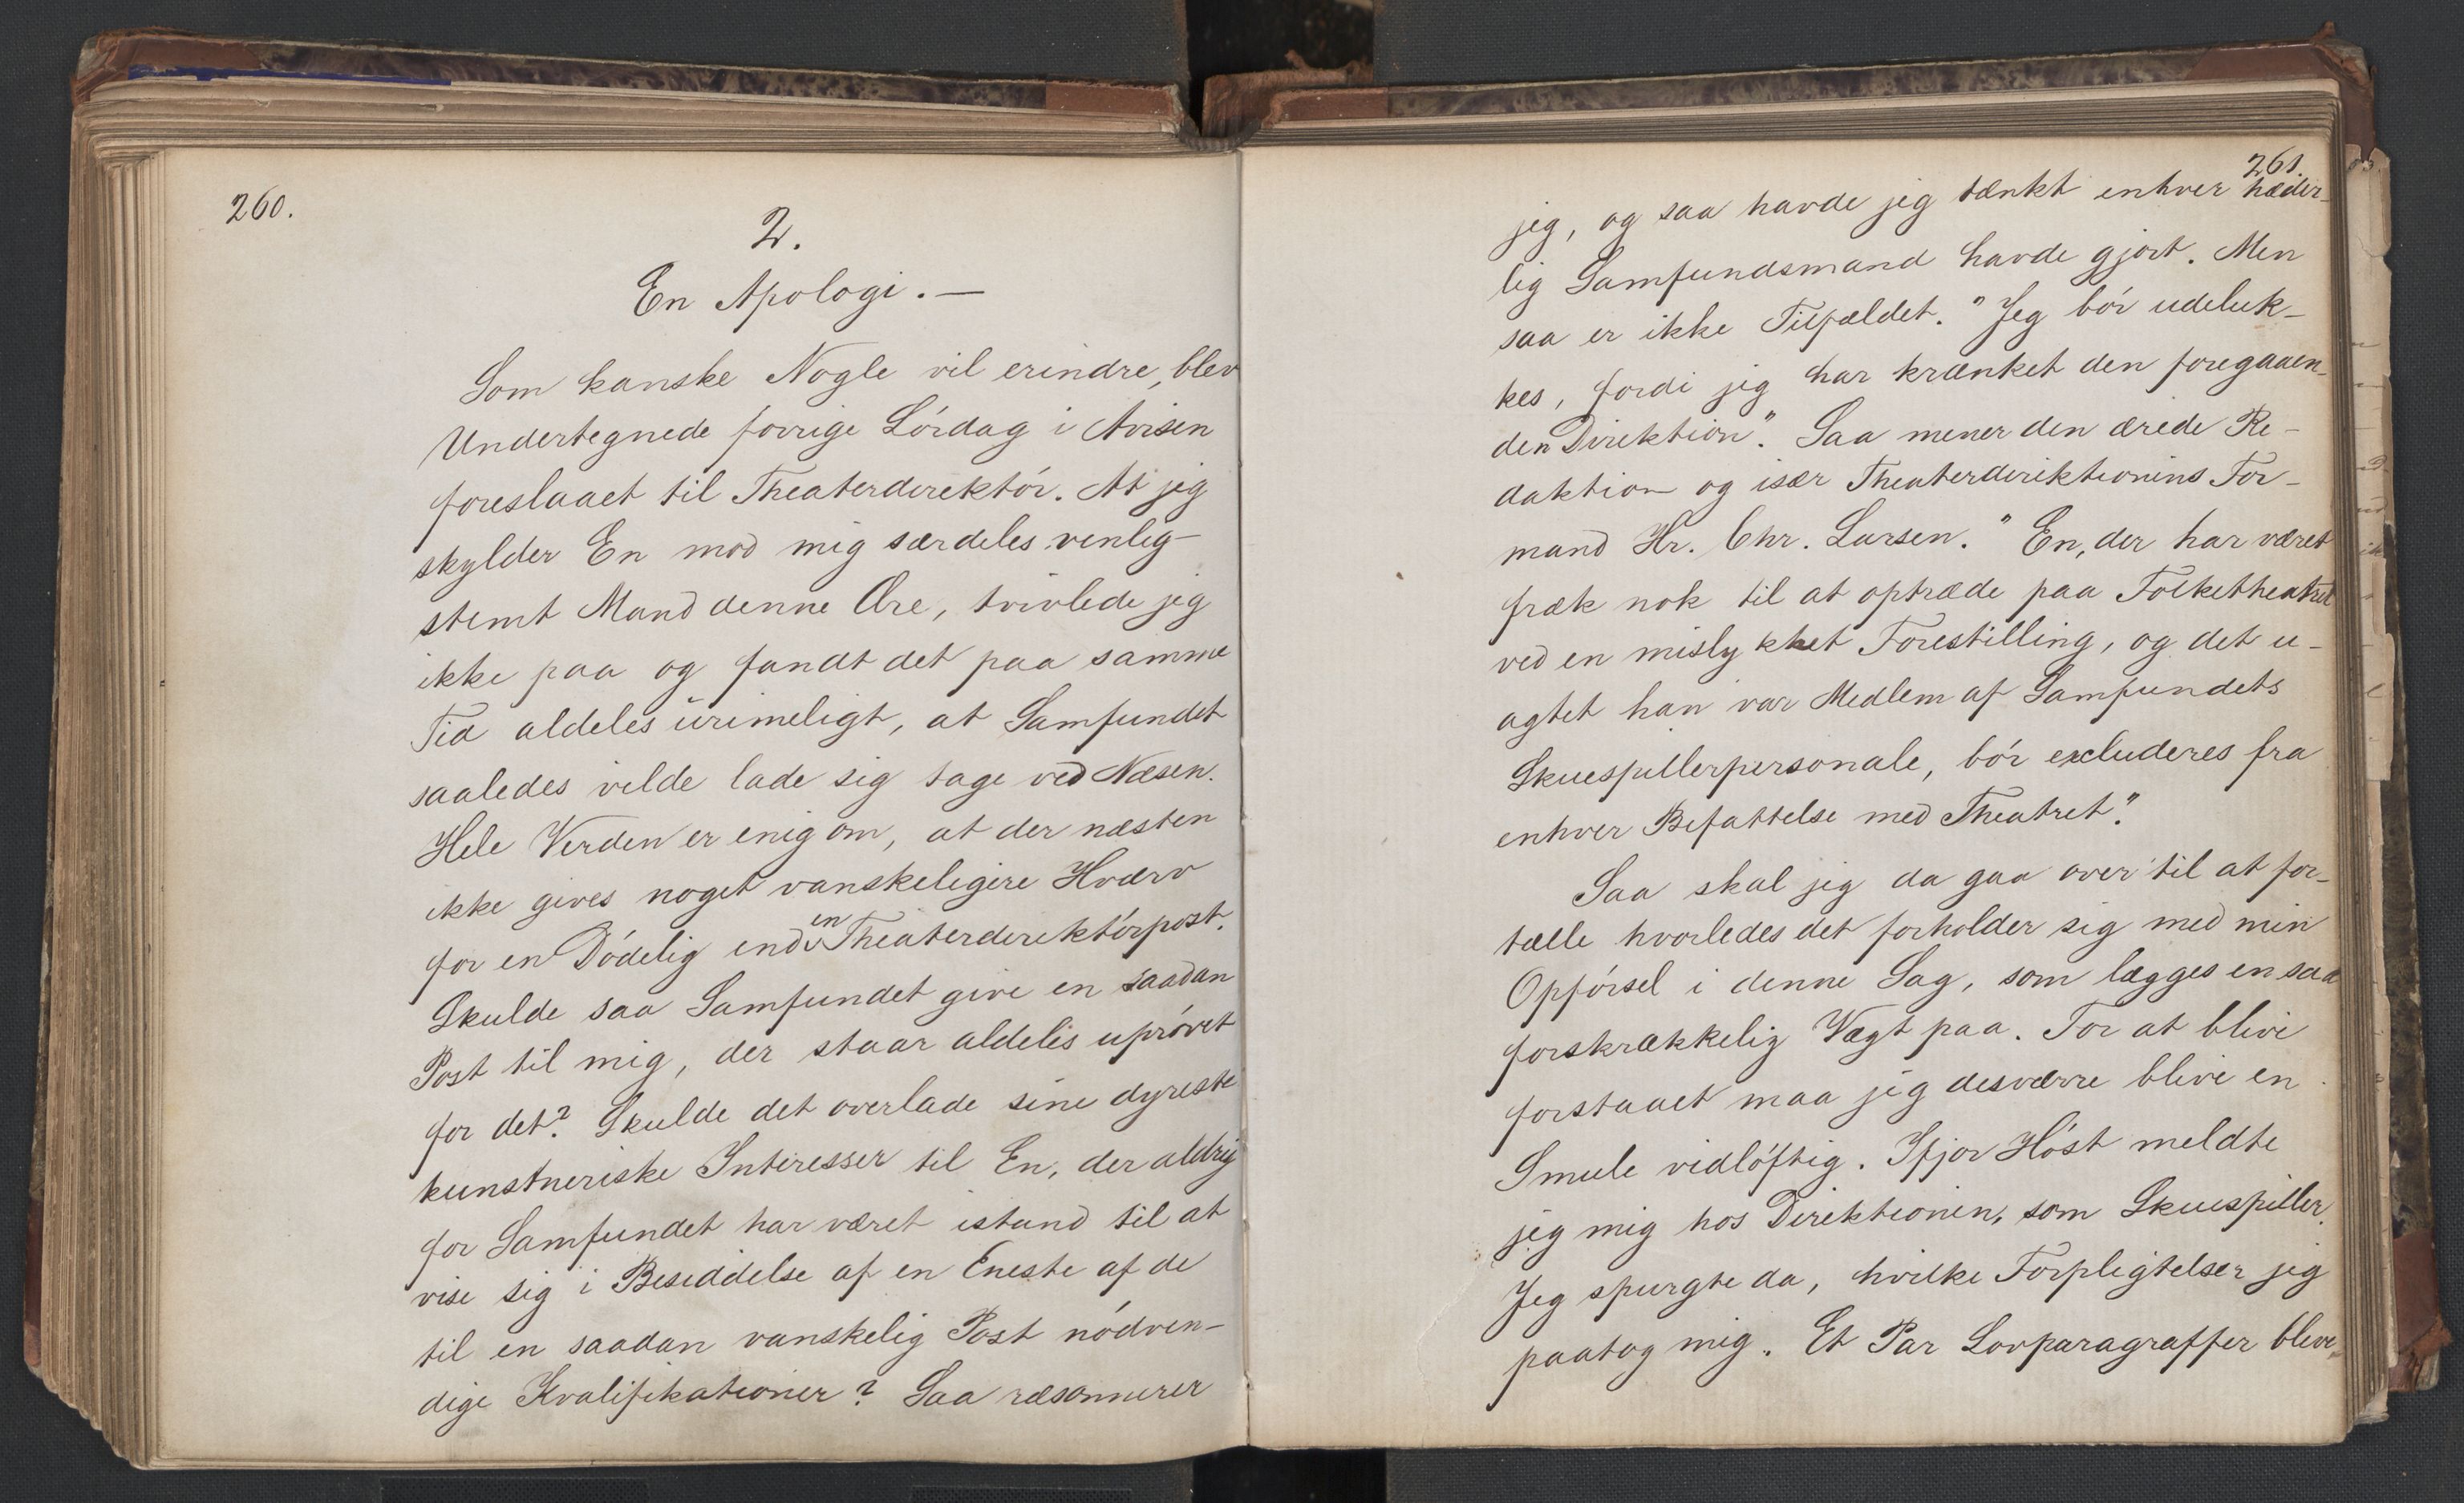 260.
2.
En Apologi. —
Som kanske Nogle vil erindre, blev
Undertegnede forrige Lördag i Avisen
foreslaaet til Theaterdirektör. At jeg
skylder En mod mig særdeles venlig-
stemt Mand denne Ære, tvivlede jeg
ikke paa og fandt det paa samme
Tid aldeles urimeligt, at Samfundet
saaledes vilde lade sig tage ved Næsen.
Hele Verden er enig om, at der næsten
ikke gives noget vanskeligere Hværv
for en Dödelig end en Theaterdirektörpost.
Skulde saa Samfundet give en saadan
Post til mig, der staar aldeles uprövet
for det? Skulde det overlade sine dyreste
kunstneriske Interesser til En, der aldrig
for Samfundet har været istand til at
vise sig i Besiddelse af en Eneste af de
til en saadan vanskelig Post nödven-
dige Kvalifikationer? Saa ræsonnerer
261.
jeg, og saa havde jeg tænkt enhver hæder-
lig Samfundsmand havde gjort. Men
saa er ikke Tilfældet. "Jeg bör udeluk-
kes, fordi jeg har krænket den foregaaen-
den Direktion". Saa mener den ærede Re-
daktion og især Theaterdirektionens For-
mand Hr. Chr. Larsen. "En, der har været
fræk nok til at optræde paa Folketheatret
ved en mislykket Forestilling, og det u-
agtet han var Medlem af Samfundets
Skuespillerpersonale, bör excluderes fra
enhver Befattelse med Theatret".
Saa skal jeg da gaa over til at for-
tælle hvorledes det forholder sig med min
Opförsel i denne Sag, som lægges en saa
forskrækkelig Vægt paa. For at blive
forstaaet maa jeg desværre blive en
Smule vidlöftig. Ifjor Höst meldte
jeg mig hos Direktionen, som Skuespiller.
Jeg spurgte da, hvilke Forpligtelser jeg
paatog mig. Et Par Lovparagraffer bleve